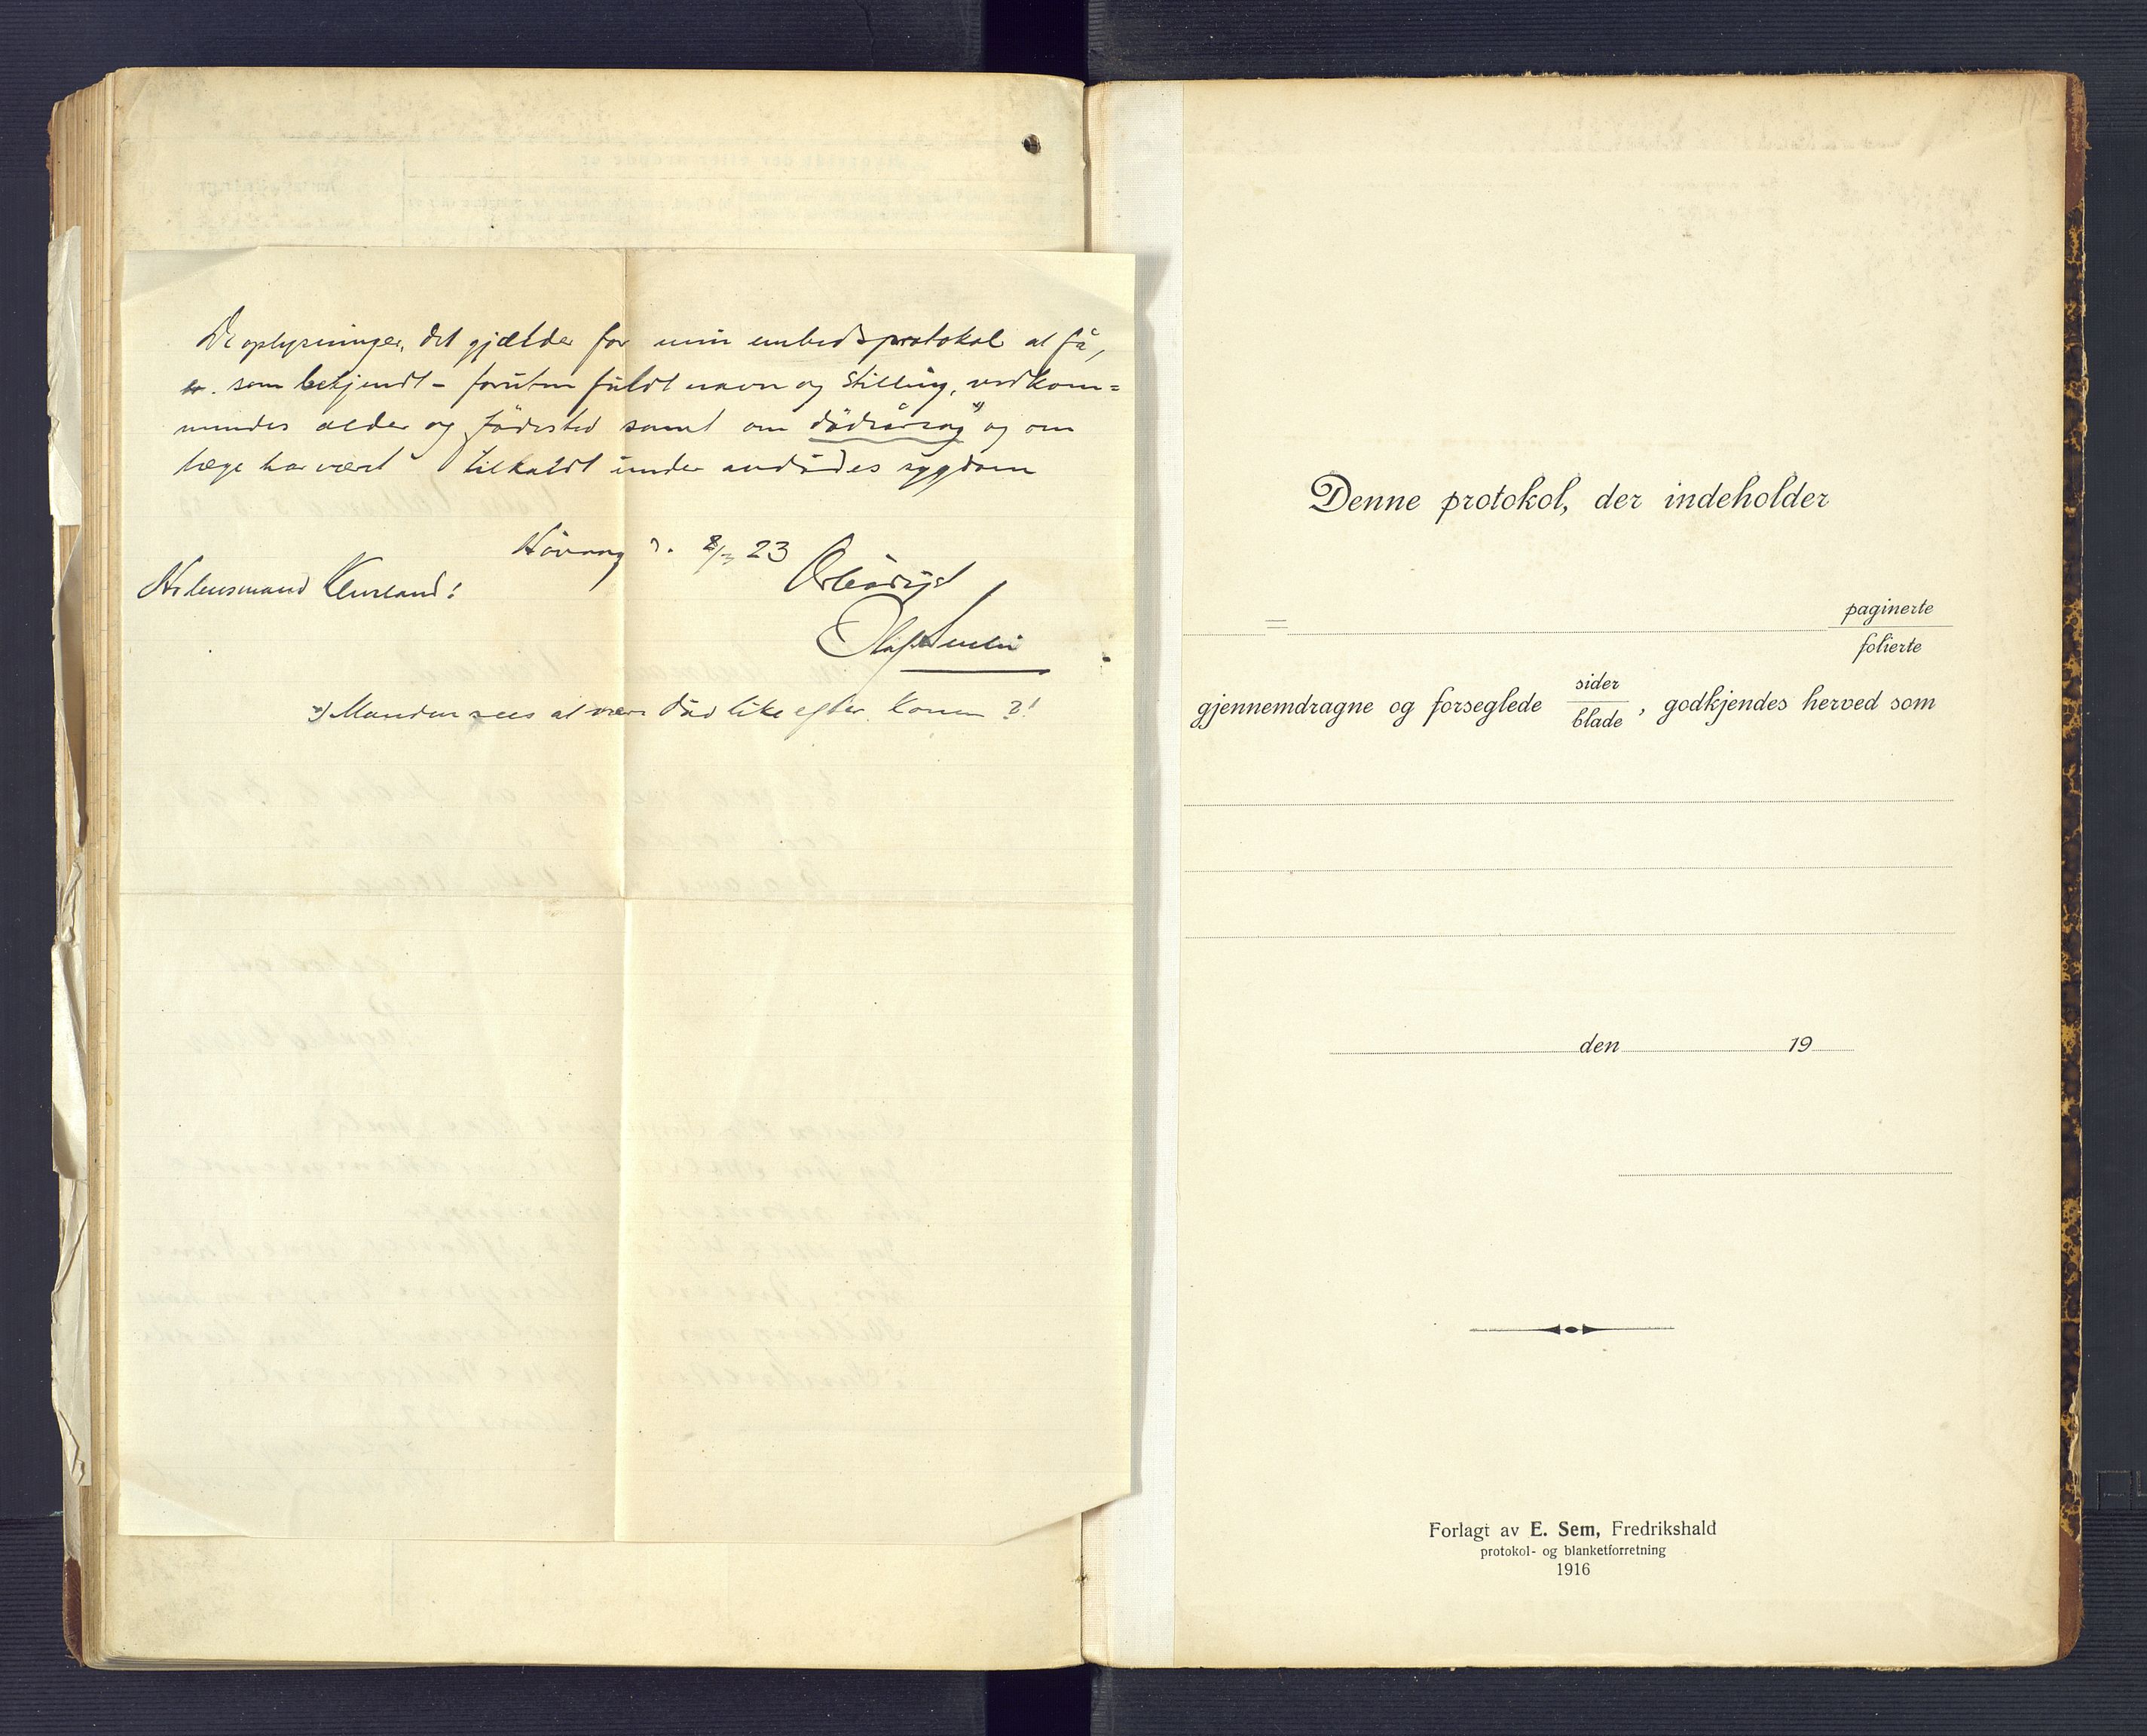 De oplysninger, det gjælder for min embedsprotokol at få,
er som bekjendt - foruten fuldt navn og stilling, vedkom=
mendes alder og födested samt om dödsårsag x) og om
læge har vært tilkaldt under avdödes sygdom
Hövaag d. 8/3 23
Ærbödigst
Hr lensmand
Olaf
x) Manden sees at være död like efter konen ?!
Denne protokol, der indeholder
=
paginerte
folierte
gjennemdragne og forseglede sider/blade, godkjendes herved som
den 19
Forlagt av E. Sem, Fredrikshald
protokol- og blanketforretning
1916